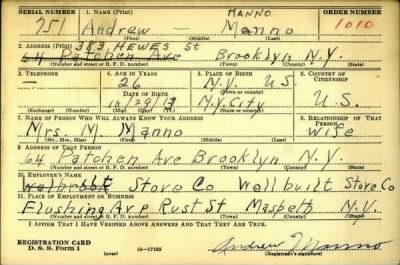 SERIAL NUMBER 1. NAME (Print) MANNO ORDER NUMBER
751 Andrew — Manno 1010
(First) (Middle) (Last)
2. ADDRESS (Print) 383 HEWES St
64 Patchen Ave Brooklyn N.Y.
(Number and street or R. F. D. number) (Town) (County) (State)
3. TELEPHONE 4. AGE IN YEARS 5. PLACE OF BIRTH 6. COUNTRY OF CITIZENSHIP
— 26 N.Y. U.S.
DATE OF BIRTH (Town or county)
10/29/13 N.Y. City U.S.
(Exchange) (Number) (Mo.) (Day) (Yr.) (State or country)
7. NAME OF PERSON WHO WILL ALWAYS KNOW YOUR ADDRESS 8. RELATIONSHIP OF THAT PERSON
Mrs. M. Manno wife
(Mr., Mrs., Miss) (First) (Middle) (Last)
9. ADDRESS OF THAT PERSON
64 Patchen Ave Brooklyn N.Y.
(Number and street or R. F. D. number) (Town) (County) (State)
10. EMPLOYER'S NAME
Stove Co Wellbuilt Stove Co
11. PLACE OF EMPLOYMENT OR BUSINESS
Flushing Ave Rust St Maspeth N.Y.
(Number and street or R. F. D. number) (Town) (County) (State)
I AFFIRM THAT I HAVE VERIFIED ABOVE ANSWERS AND THAT THEY ARE TRUE.
REGISTRATION CARD
D. S. S. Form 1 (over) 16—17105 Andrew Manno
(Registrant's signature)